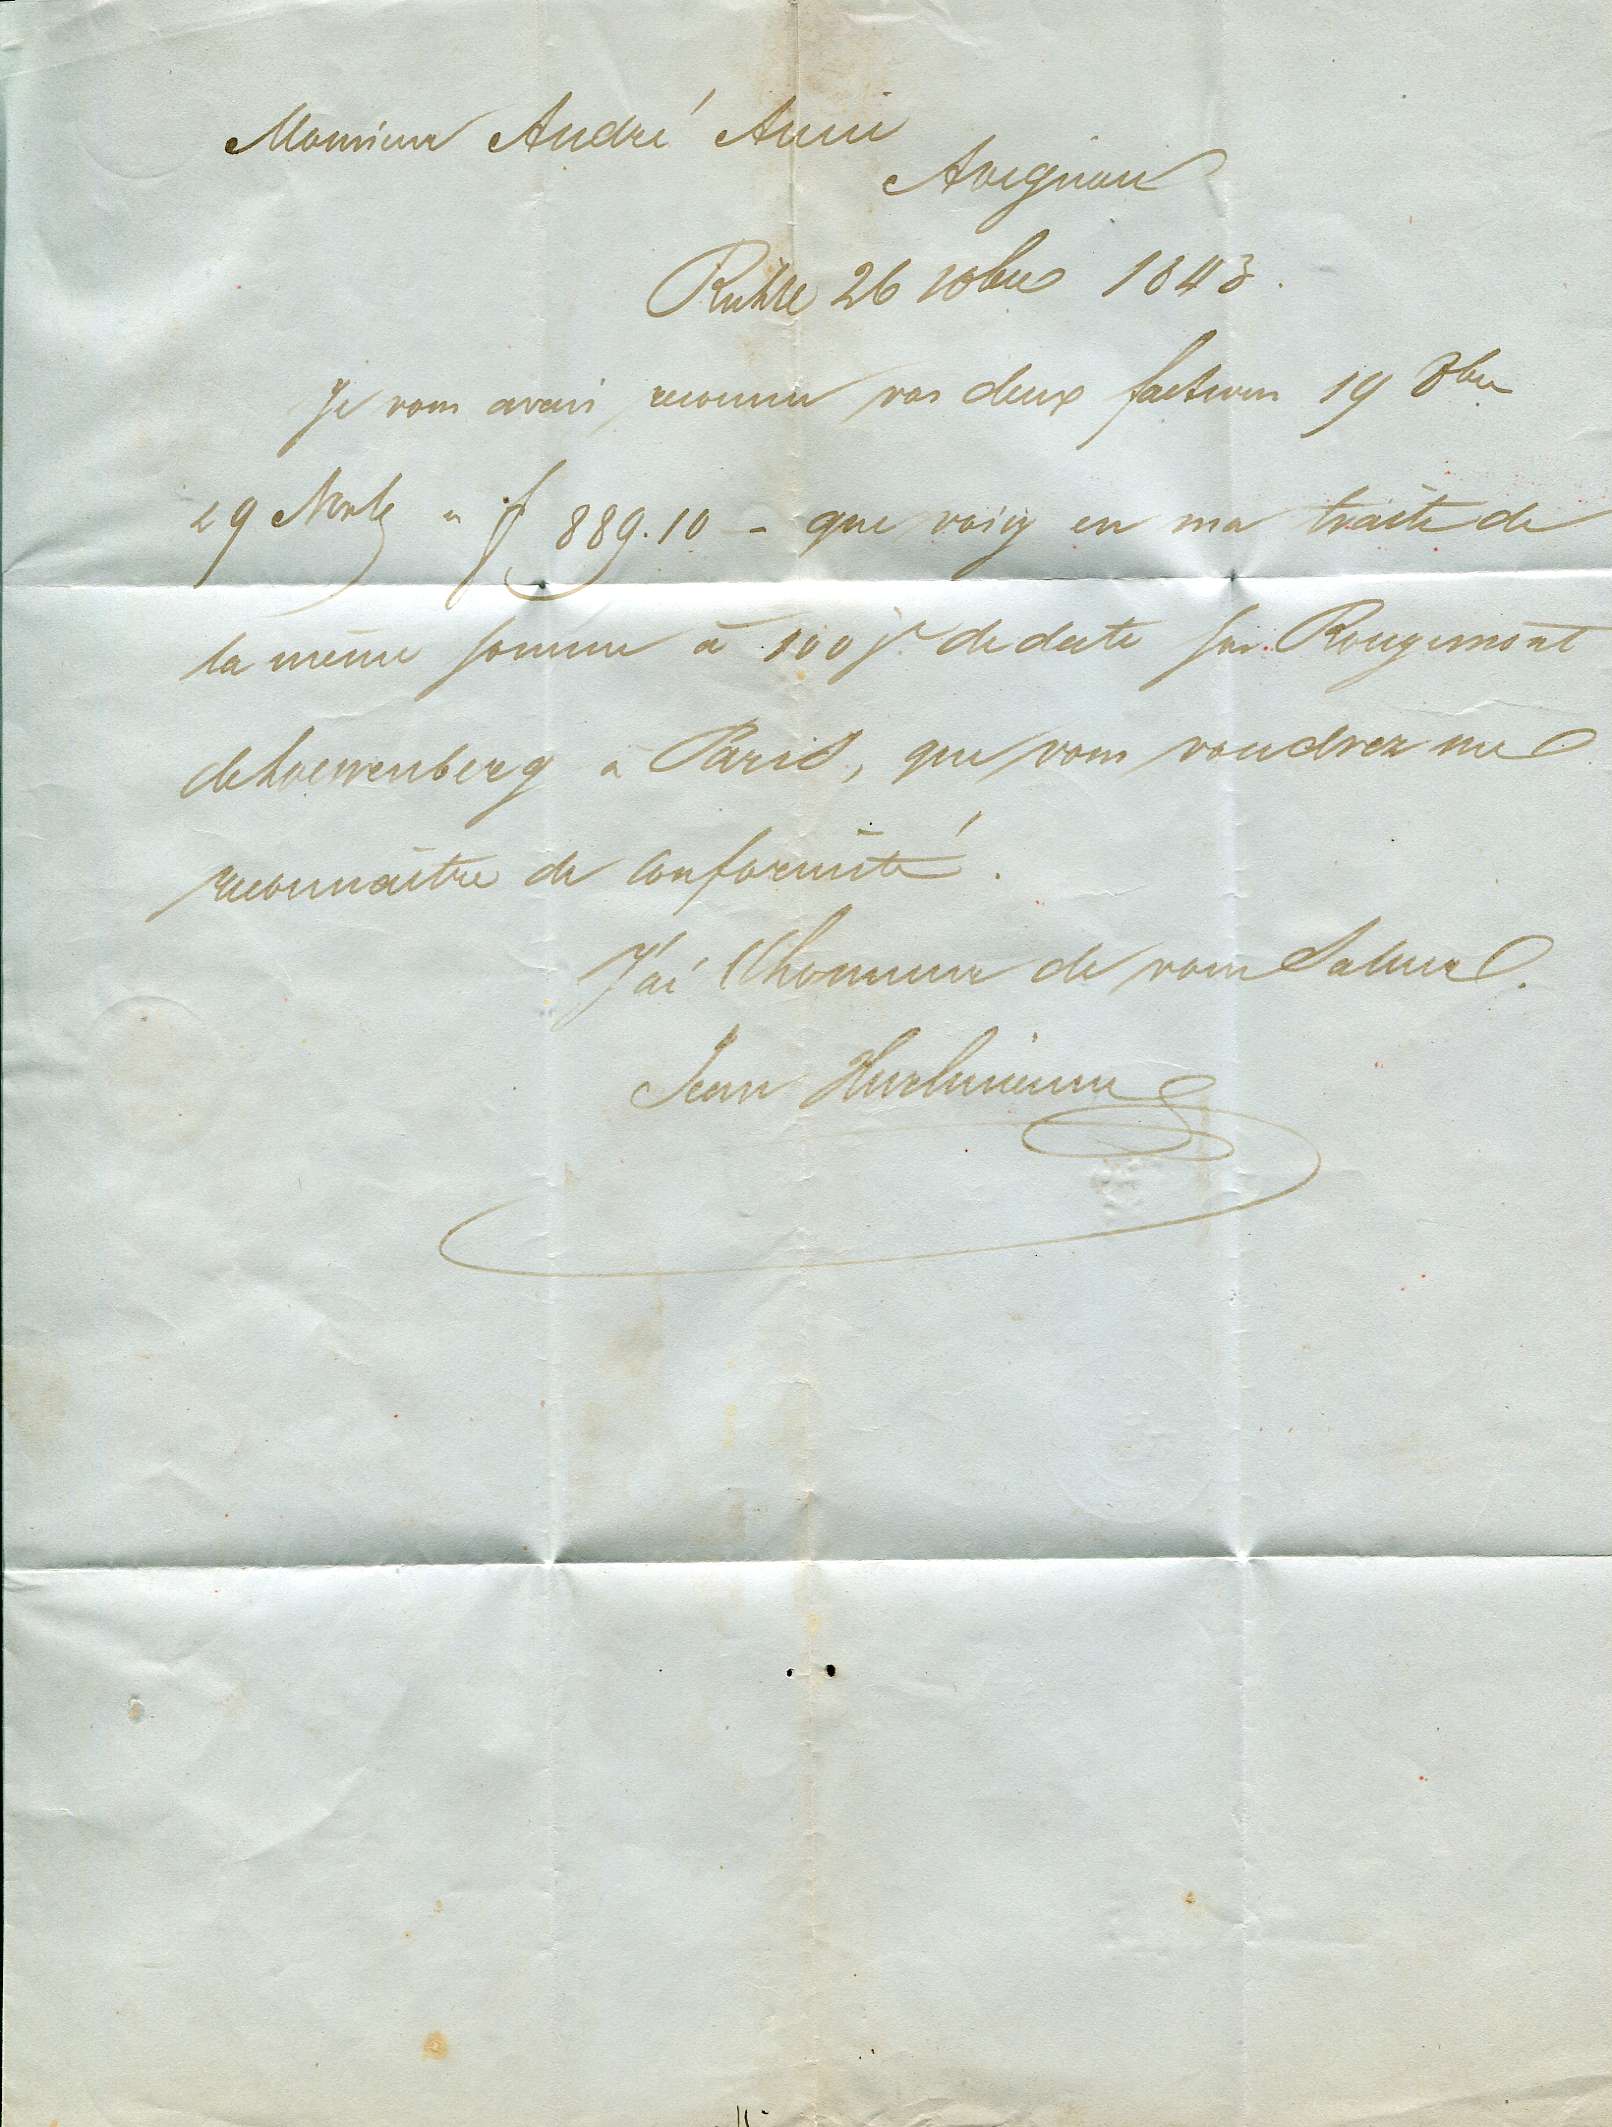 Monsieur André Aune
Avignon
26 10bre 1843.
Je vous avais reconnu vos deux factures 19 8bre
29 Novbre " f 889.10 - que voiçy en ma traite de
la même somme à 100 jrs de date sur Rougemont
de Loewenberg à Paris, que vous voudrez me
reconnaître de conformité.
J'ai l'honneur de vous Saluer.
Jean